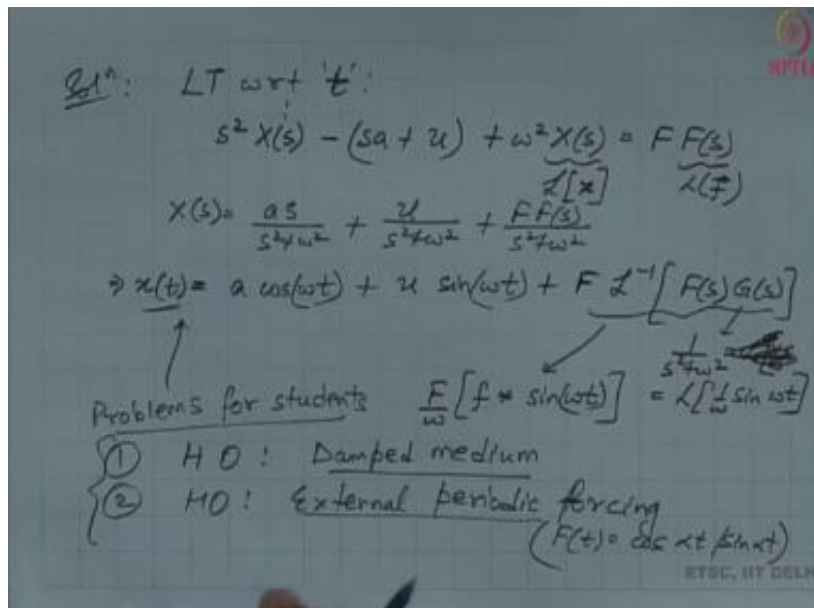 NPTEL
Solⁿ: LT wrt 't':
s² X(s) - (sa + u) + ω² X(s) = F F(s)
ℒ[x] ℒ(f)
X(s) = as/(s²+ω²) + u/(s²+ω²) + F F(s)/(s²+ω²)
⇒ x(t) = a cos(ωt) + u sin(ωt) + F ℒ⁻¹[F(s)G(s)]
1/(s²+ω²)
Problems for students F/ω [f * sin(ωt)] = ℒ[1/ω sin ωt]
① H O : Damped medium
② HO : External periodic forcing
(F(t) = cos αt / sin αt)
ETSC, IIT DELHI